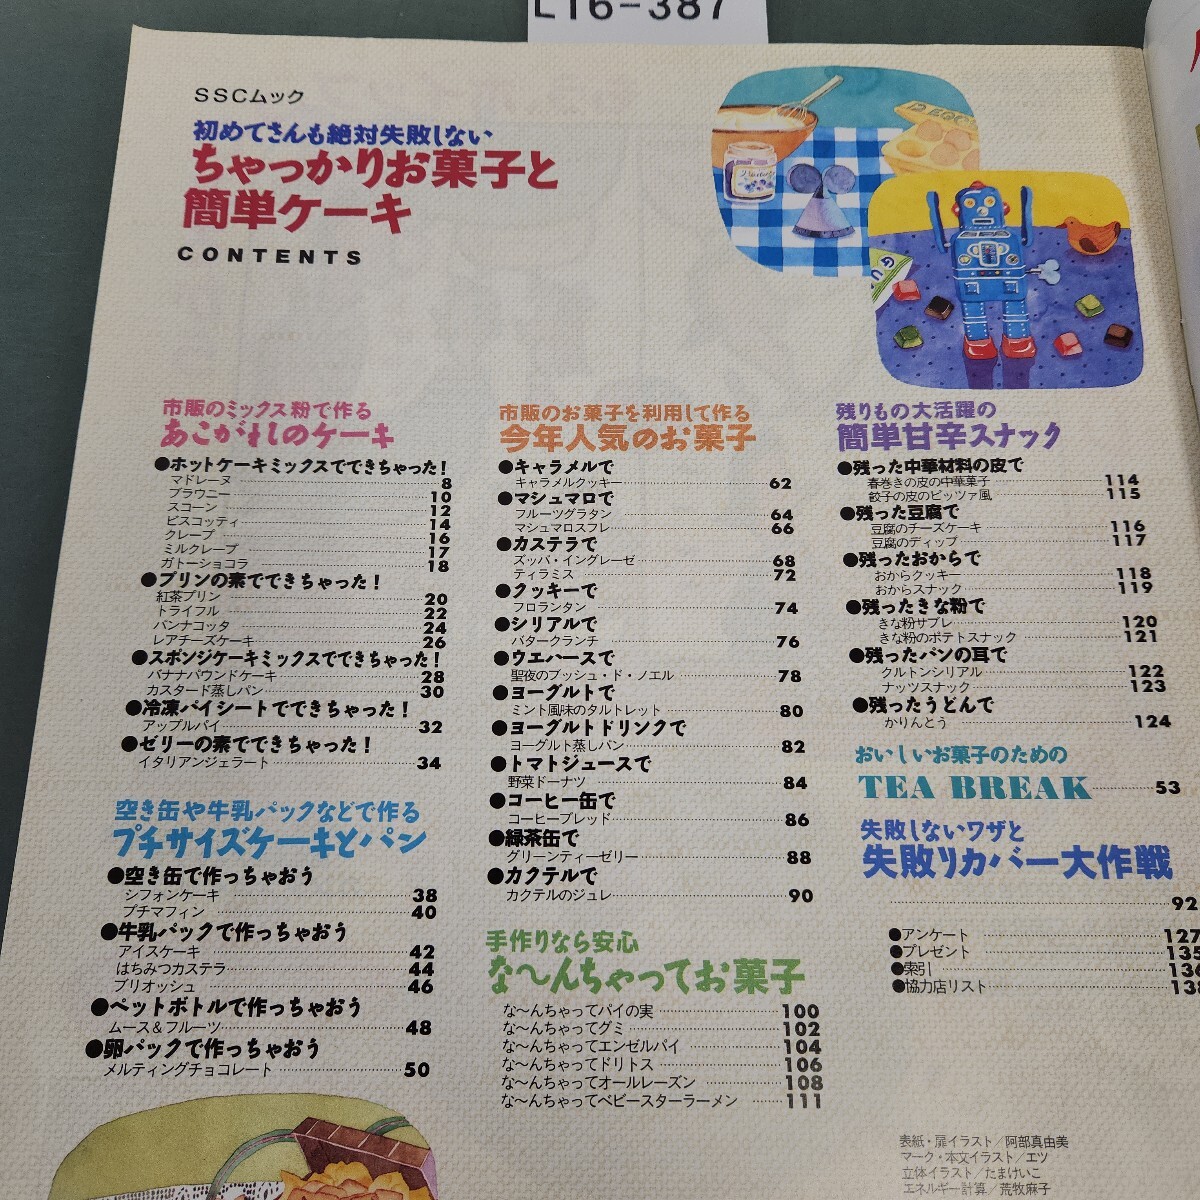 L16-387
SSCムック
初めてさんも絶対失敗しない
ちゃっかりお菓子と
簡単ケーキ
CONTENTS
市販のミックス粉で作る
あこがれのケーキ
●ホットケーキミックスでできちゃった!
マドレーヌ 8
ブラウニー 10
スコーン 12
ビスコッティ 14
クレープ 16
ミルクレープ 17
ガトーショコラ 18
●プリンの素でできちゃった!
紅茶プリン 20
トライフル 22
パンナコッタ 24
レアチーズケーキ 26
●スポンジケーキミックスでできちゃった!
バナナパウンドケーキ 28
カスタード蒸しパン 30
●冷凍パイシートでできちゃった!
アップルパイ 32
●ゼリーの素でできちゃった!
イタリアンジェラート 34
空き缶や牛乳パックなどで作る
プチサイズケーキとパン
●空き缶で作っちゃおう
シフォンケーキ 38
プチマフィン 40
●牛乳パックで作っちゃおう
アイスケーキ 42
はちみつカステラ 44
ブリオッシュ 46
●ペットボトルで作っちゃおう
ムース&フルーツ 48
●卵パックで作っちゃおう
メルティングチョコレート 50
市販のお菓子を利用して作る
今年人気のお菓子
●キャラメルで
キャラメルクッキー 62
●マシュマロで
フルーツグラタン 64
マシュマロスフレ 66
●カステラで
ズッパ・イングレーゼ 68
ティラミス 72
●クッキーで
フロランタン 74
●シリアルで
バタークランチ 76
●ウエハースで
聖夜のブッシュ・ド・ノエル 78
●ヨーグルトで
ミント風味のタルトレット 80
●ヨーグルトドリンクで
ヨーグルト蒸しパン 82
●トマトジュースで
野菜ドーナツ 84
●コーヒー缶で
コーヒーブレッド 86
●緑茶缶で
グリーンティーゼリー 88
●カクテルで
カクテルのジュレ 90
手作りなら安心
な〜んちゃってお菓子
な〜んちゃってパイの実 100
な〜んちゃってグミ 102
な〜んちゃってエンゼルパイ 104
な〜んちゃってドリトス 106
な〜んちゃってオールレーズン 108
な〜んちゃってベビースターラーメン 111
残りもの大活躍の
簡単甘辛スナック
●残った中華材料の皮で
春巻きの皮の中華菓子 114
餃子の皮のピッツァ風 115
●残った豆腐で
豆腐のチーズケーキ 116
豆腐のディップ 117
●残ったおからで
おからクッキー 118
おからスナック 119
●残ったきな粉で
きな粉サブレ 120
きな粉のポテトスナック 121
●残ったパンの耳で
クルトンシリアル 122
ナッツスナック 123
●残ったうどんで
かりんとう 124
おいしいお菓子のための
TEA BREAK 53
失敗しないワザと
失敗リカバー大作戦
92
●アンケート 127
●プレゼント 135
●索引 136
●協力店リスト 138
表紙・扉イラスト/阿部真由美
マーク・本文イラスト/エツ
立体イラスト/たまけいこ
エネルギー計算/荒牧麻子